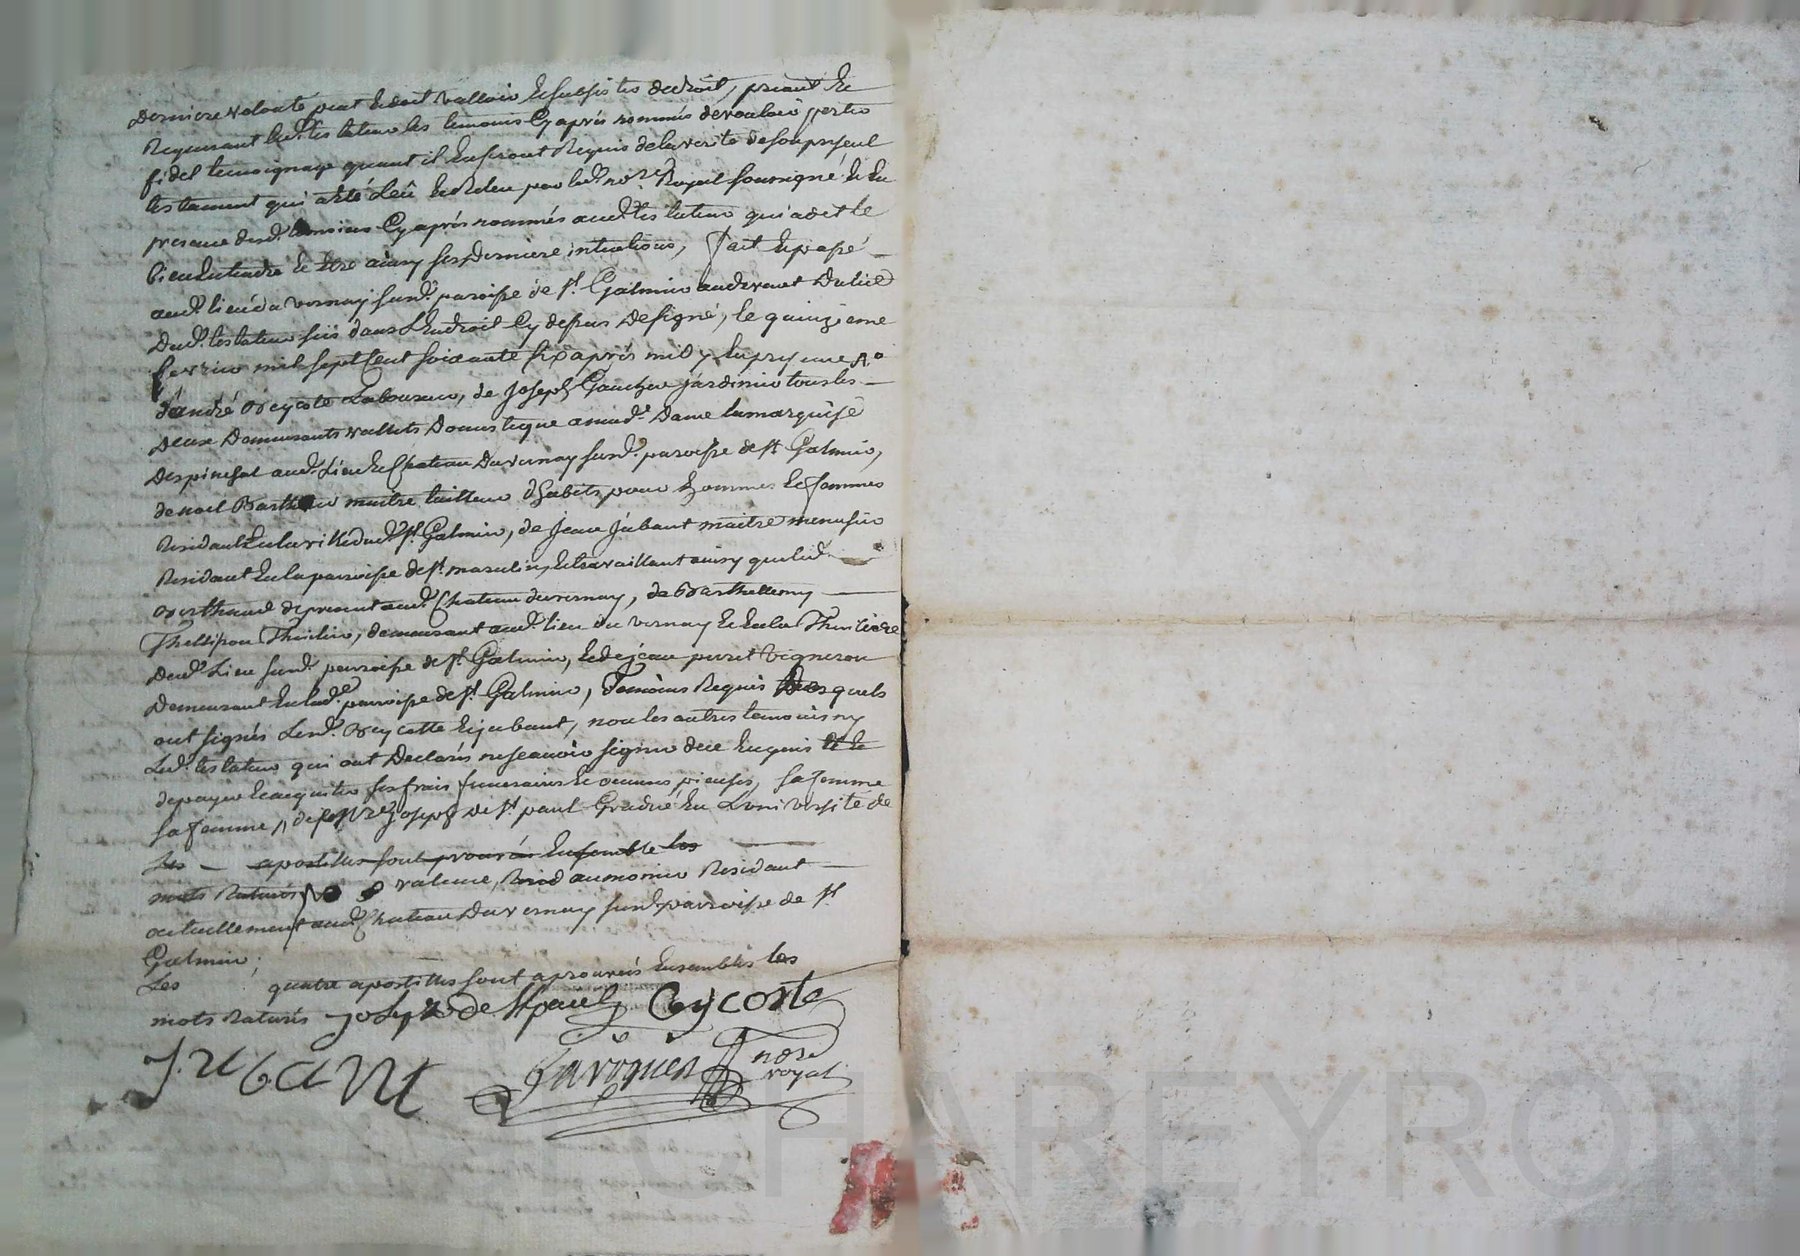 derniere volonté peut et doit valloir et subsister de droit, priant et
Requerant led. testateur les temoins Cy après nommés de vouloir porter
fidel temoignage quant il en seront Requis de la verité de son present
testament qui a eté Leû et Releu par led. nore Royal soussigné et en
presence desd. temoins Cy après nommés aud. testateur qui a dit le
bien entendre et etre ainsy ses derniere intentions, fait et passé
aud. lieu du vernay susd. paroisse de st. Galmier au devant du lict
dud. testateur sis dans L'endroit Cy dessus designé, le quinzieme
fevrier mil sept Cent soixante six après midy en presence
d'andré Oeycoste Laboureur, de Joseph Gaucher jardinier tous les
deux demeurants vallets domestique a mad. Dame la marquise
Despinchal aud. Lieu et Chateau du vernay susd. paroisse de st. Galmier,
de noel maitre tailleur d'habits pour hommes et femmes
Residant en la ville dud. st. Galmier, de jean jubant maitre menusier
Residant en la paroisse de st. masculin, et travaillant ainsy que led.
a present aud. Chateau du vernay, de Barthellemy
Thellison Thuilier, demeurant aud. lieu du vernay et en la Thuiliere
dud. Lieu susd. paroisse de st. Galmier, et de jean perret Vigneron
demeurant en lad. paroisse de st. Galmier, Temoins Requis desquels
ont signés Lesd. Oeycotte et jubant, non les autres temoins ny
Led. testateur qui ont declarés ne scavoir signer de ce enquis et
de payer et acquiter ses frais funeraires et oeuvres pieuses, sa femme
sa femme, de joseph de st. paul Gradué en L'université de
Les apostilles sont prouvés ensemble les
mots Raturés valence, aumonier Residant
actuellement aud. Chateau du vernay susd. paroisse de st.
Galmier.
Les quatre apostilles sont aprouvés ensembles les
mots Raturés joseph de st paul Oeycoste
Jubant nore
royal
CHAREYRON